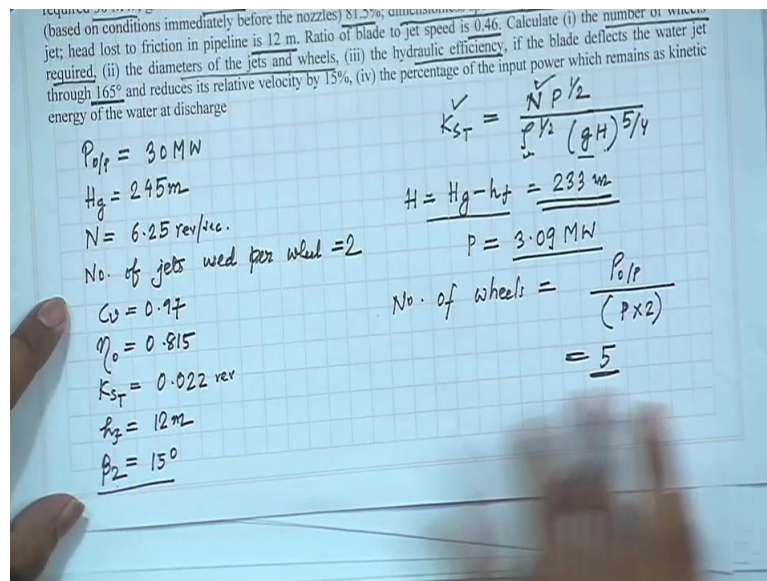 (based on conditions immediately before the nozzles) 81.5%;
jet; head lost to friction in pipeline is 12 m. Ratio of blade to jet speed is 0.46. Calculate (i) the number of wheels
required, (ii) the diameters of the jets and wheels, (iii) the hydraulic efficiency, if the blade deflects the water jet
through 165° and reduces its relative velocity by 15%, (iv) the percentage of the input power which remains as kinetic
energy of the water at discharge
K_ST = N P^1/2 / ρ^1/2 (gH)^5/4
P_o/p = 30 MW
Hg = 245m
N = 6.25 rev/sec.
No. of jets used per wheel = 2
Cv = 0.97
η_o = 0.815
K_ST = 0.022 rev
h_f = 12m
β_2 = 15°
H = Hg - h_f = 233 m
P = 3.09 MW
No. of wheels = P_o/p / (P×2)
= 5